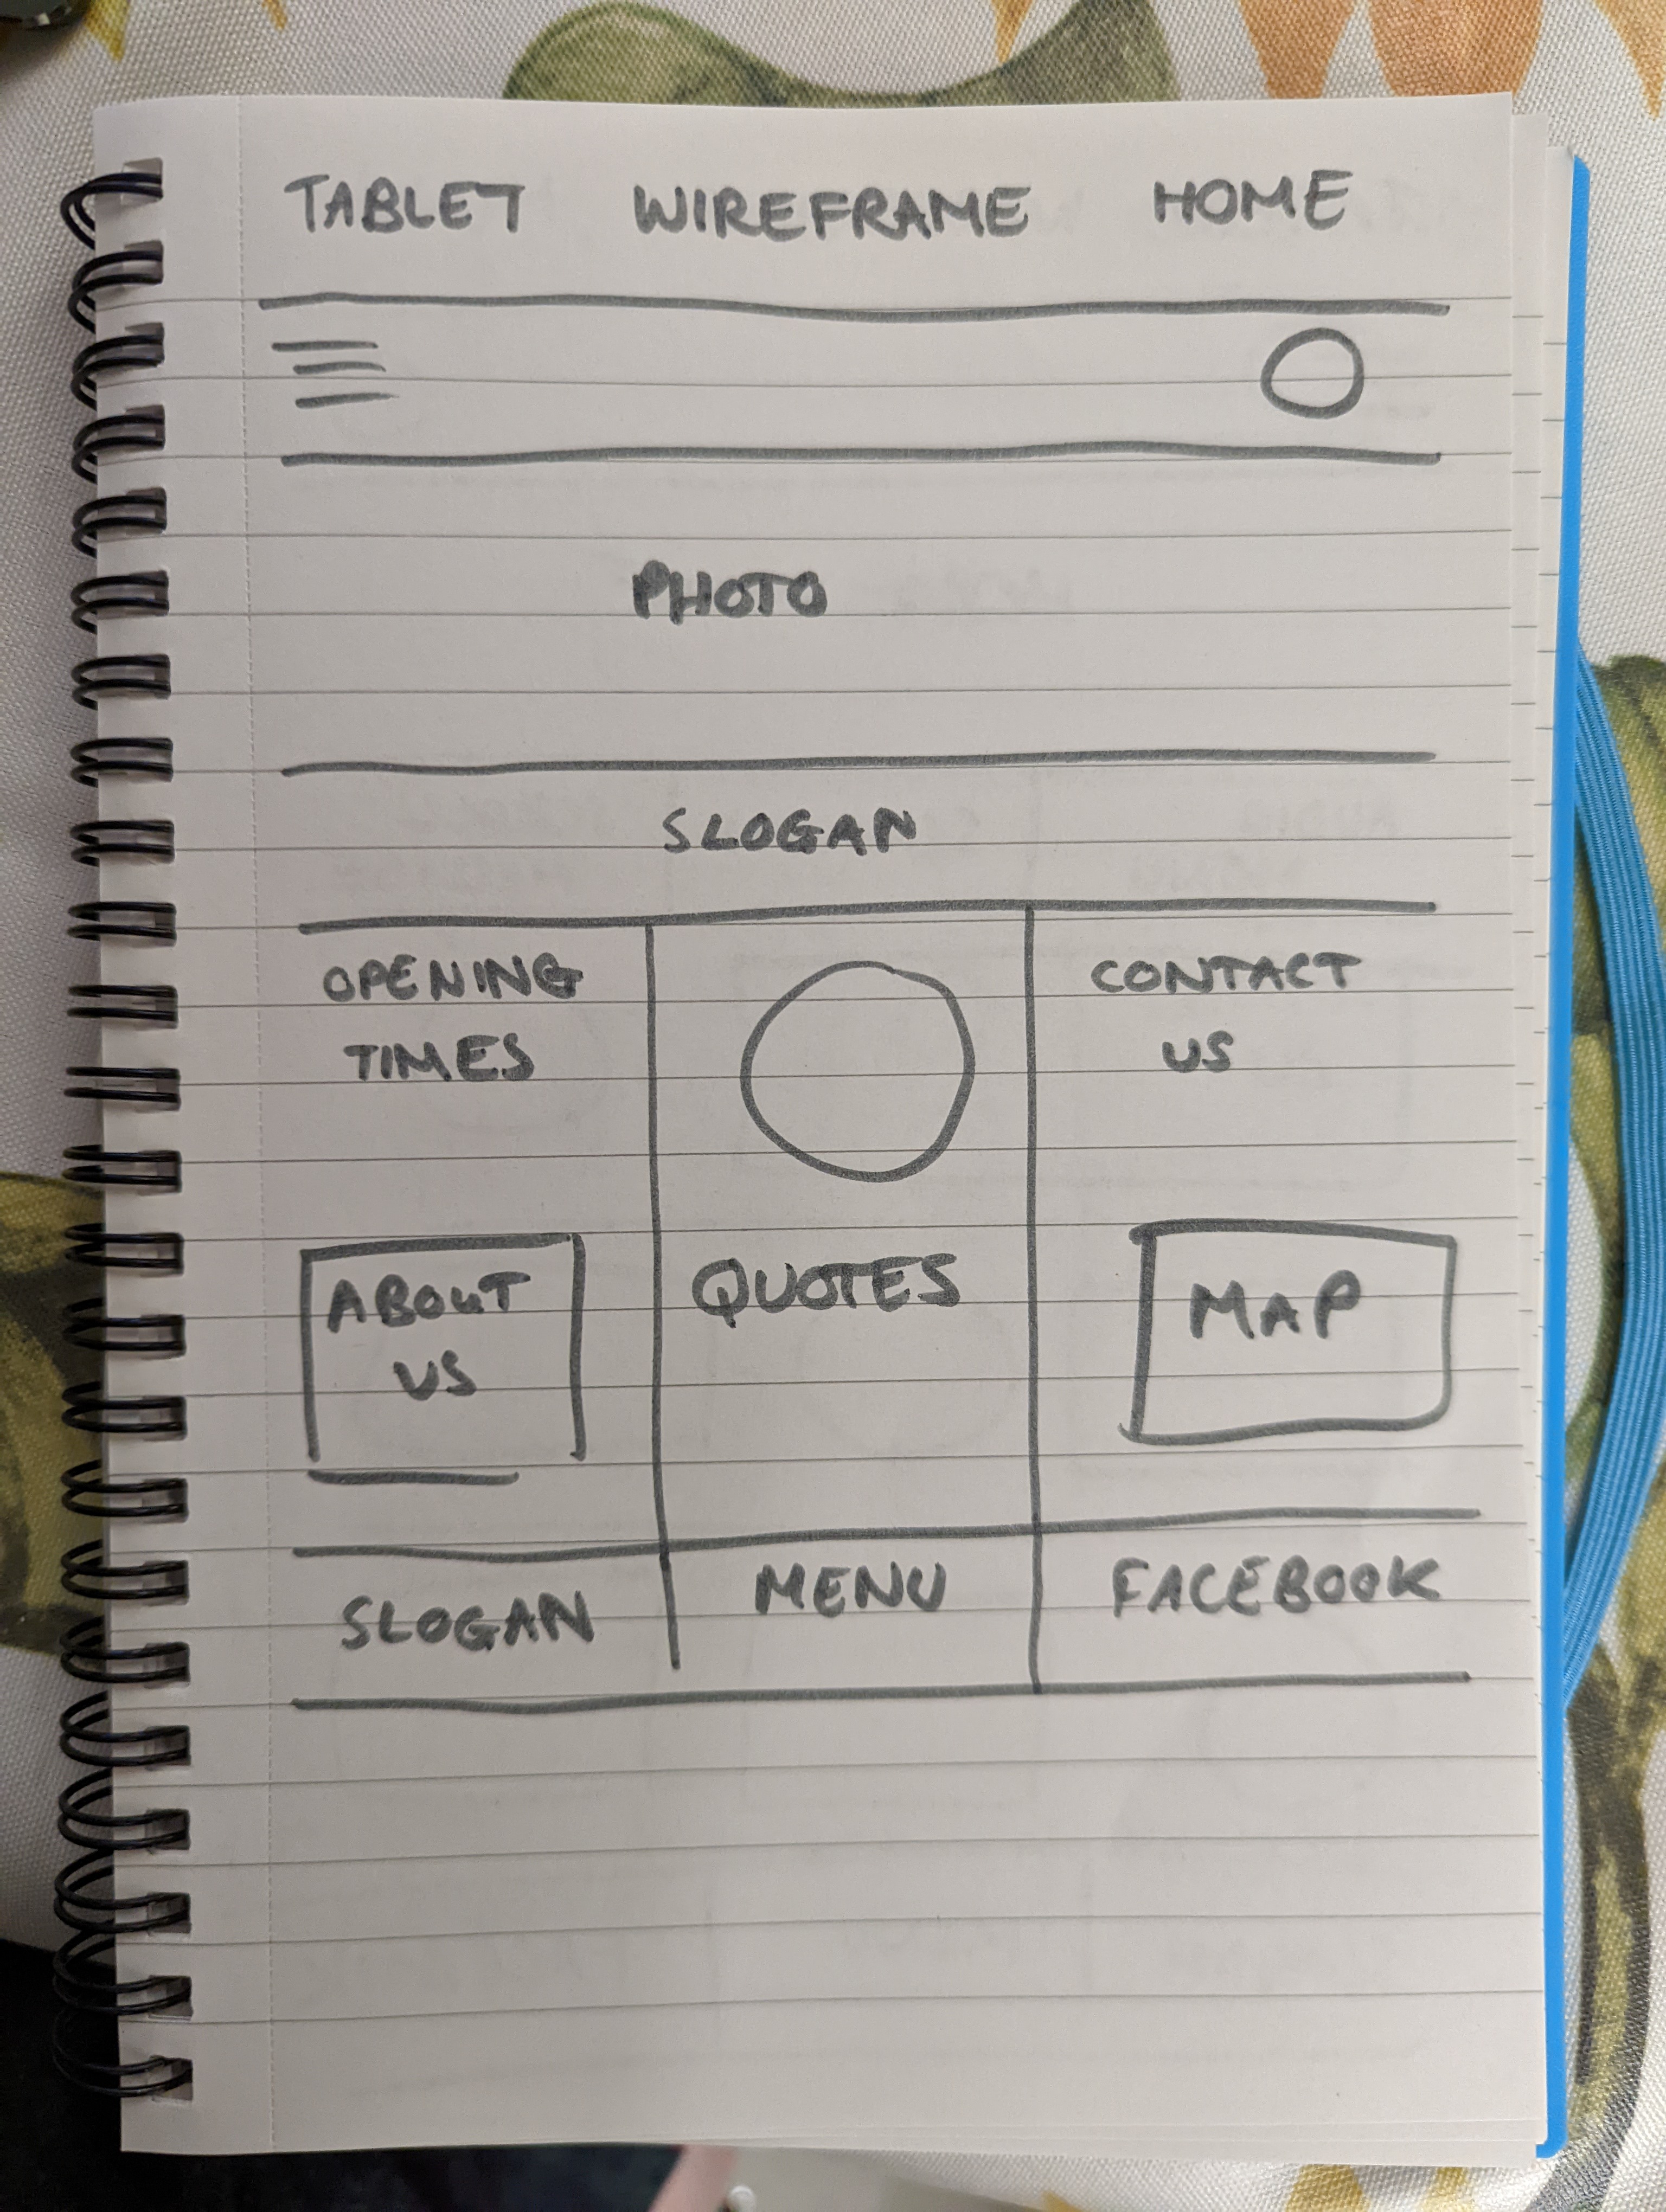 TABLET WIREFRAME HOME
PHOTO
SLOGAN
OPENING
TIMES
CONTACT
US
ABOUT
US
QUOTES
MAP
SLOGAN
MENU
FACEBOOK